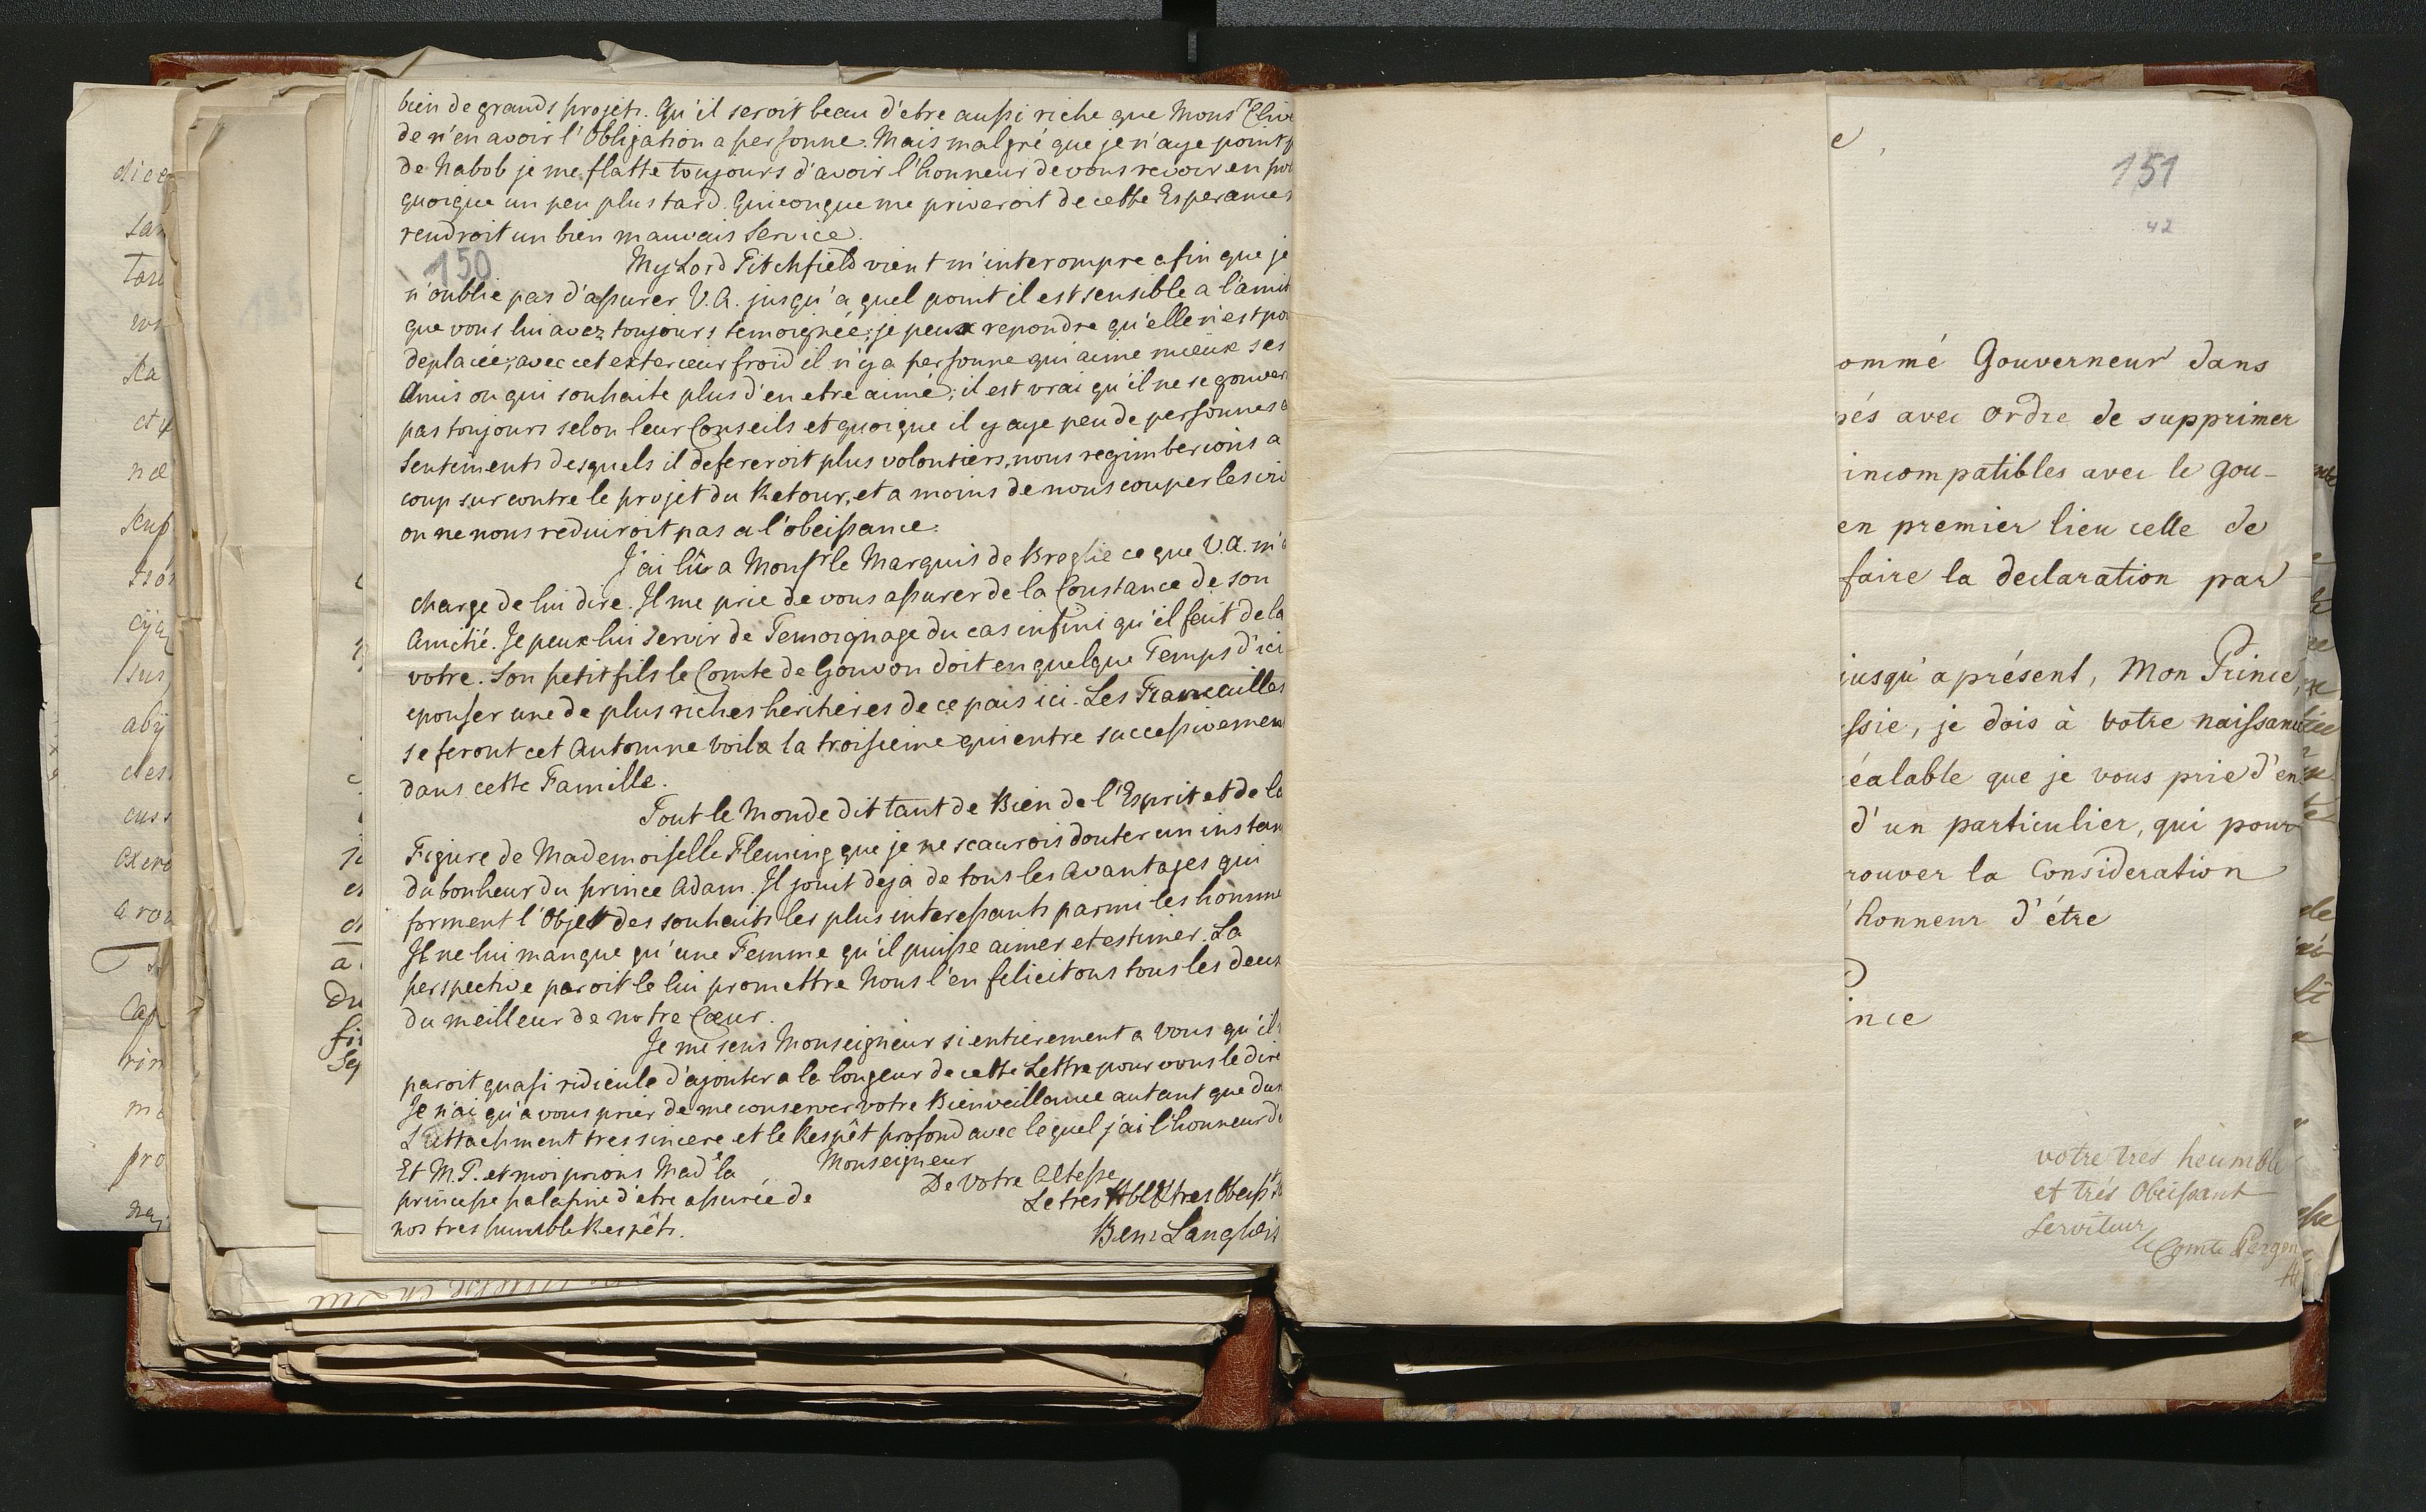 bien de grands projets. Qu'il seroit beau d'etre aussi riche que Mons.r Clive
de n'en avoir l'Obligation a personne. Mais malgré que je n'aye point
de Nabob je me flatte toujours d'avoir l'honneur de vous revoir en
quoique un peu plus tard. Quiconque me priveroit de cette Esperance
rendroit un bien mauvais Service.
150
My Lord Titchfield vient m'interompre afin que je
n'oublie pas d'assurer V.A. jusqu'a quel point il est sensible a l'amit
que vous lui avez toujours temoignée; je peux repondre qu'elle n'est po
deplacée; avec cet exterieur froid il n'y a personne qui aime mieux ses
Amis ou qui souhaite plus d'en etre aimé; il est vrai qu'il ne se gouver
pas toujours selon leur Conseils et quoique il y aye peu de personnes a
Sentements desquels il defereroit plus volontiers, nous regimberions a
coup sur contre le projet du Retour, et a moins de nous couper les
on ne nous reduiroit pas a l'obeissance.
J'ai lû a Monsr le Marquis de Breglie ce que V.A. m'a
charge de lui dire. Il me prie de vous assurer de la Constance de son
Amitié. Je peux lui servir de Temoignage du cas infini qu'il fait de la
votre. Son petit fils le Comte de Gouvon doit en quelque Temps d'ici
epouser une de plus riches heritieres de ce païs ici. Les Fiancailles
se feront cet Automne voila la troisieme qui entre successivemen
dans cette Famille.
Tout le Monde dit tant de Bien de l'Esprit et de la
Figure de Mademoiselle Fleming que je ne scaurois douter un instan
du bonheur du prince Adam. Il jouit deja de tous les Avantages qui
forment l'Objet des souhaits les plus interessants parmi les homme
Il ne lui manque qu'une Femme qu'il puisse aimer et estimer. La
perspective paroit le lui promettre Nous l'en felicitons tous les deux
du meilleur de notre Cœur.
Je me sens Monseigneur si entierement a vous qu'il
paroit quasi ridicule d'ajouter a la longeur de cette Lettre pour vous le dire
Je n'ai qu'a vous prier de me conserver votre Bienveillance autant que dur
L'attachment tres sincere et le Respêt profond avec lequel j'ai l'honneur d'e
Monseigneur
De Votre Altesse
Le tres Hble & tres Obeisst
Benj Langlois
Et M.T. et moi prions Made la
princesse palatine d'etre assurée de
nos tres humble Respêts.
e,
151
42
ommé Gouverneur dans
pés avec ordre de supprimer
incompatibles avec le gou-
en premier lieu celle de
faire la declaration par
jusqu'a présent, Mon Prince,
ssie, je dois à votre naissance
éalable que je vous prie d'en
d'un particulier, qui pour
rouver la Consideration
'honneur d'être
nce
votre très heumble
et très Obeissant
Serviteur
le Comte Pergen